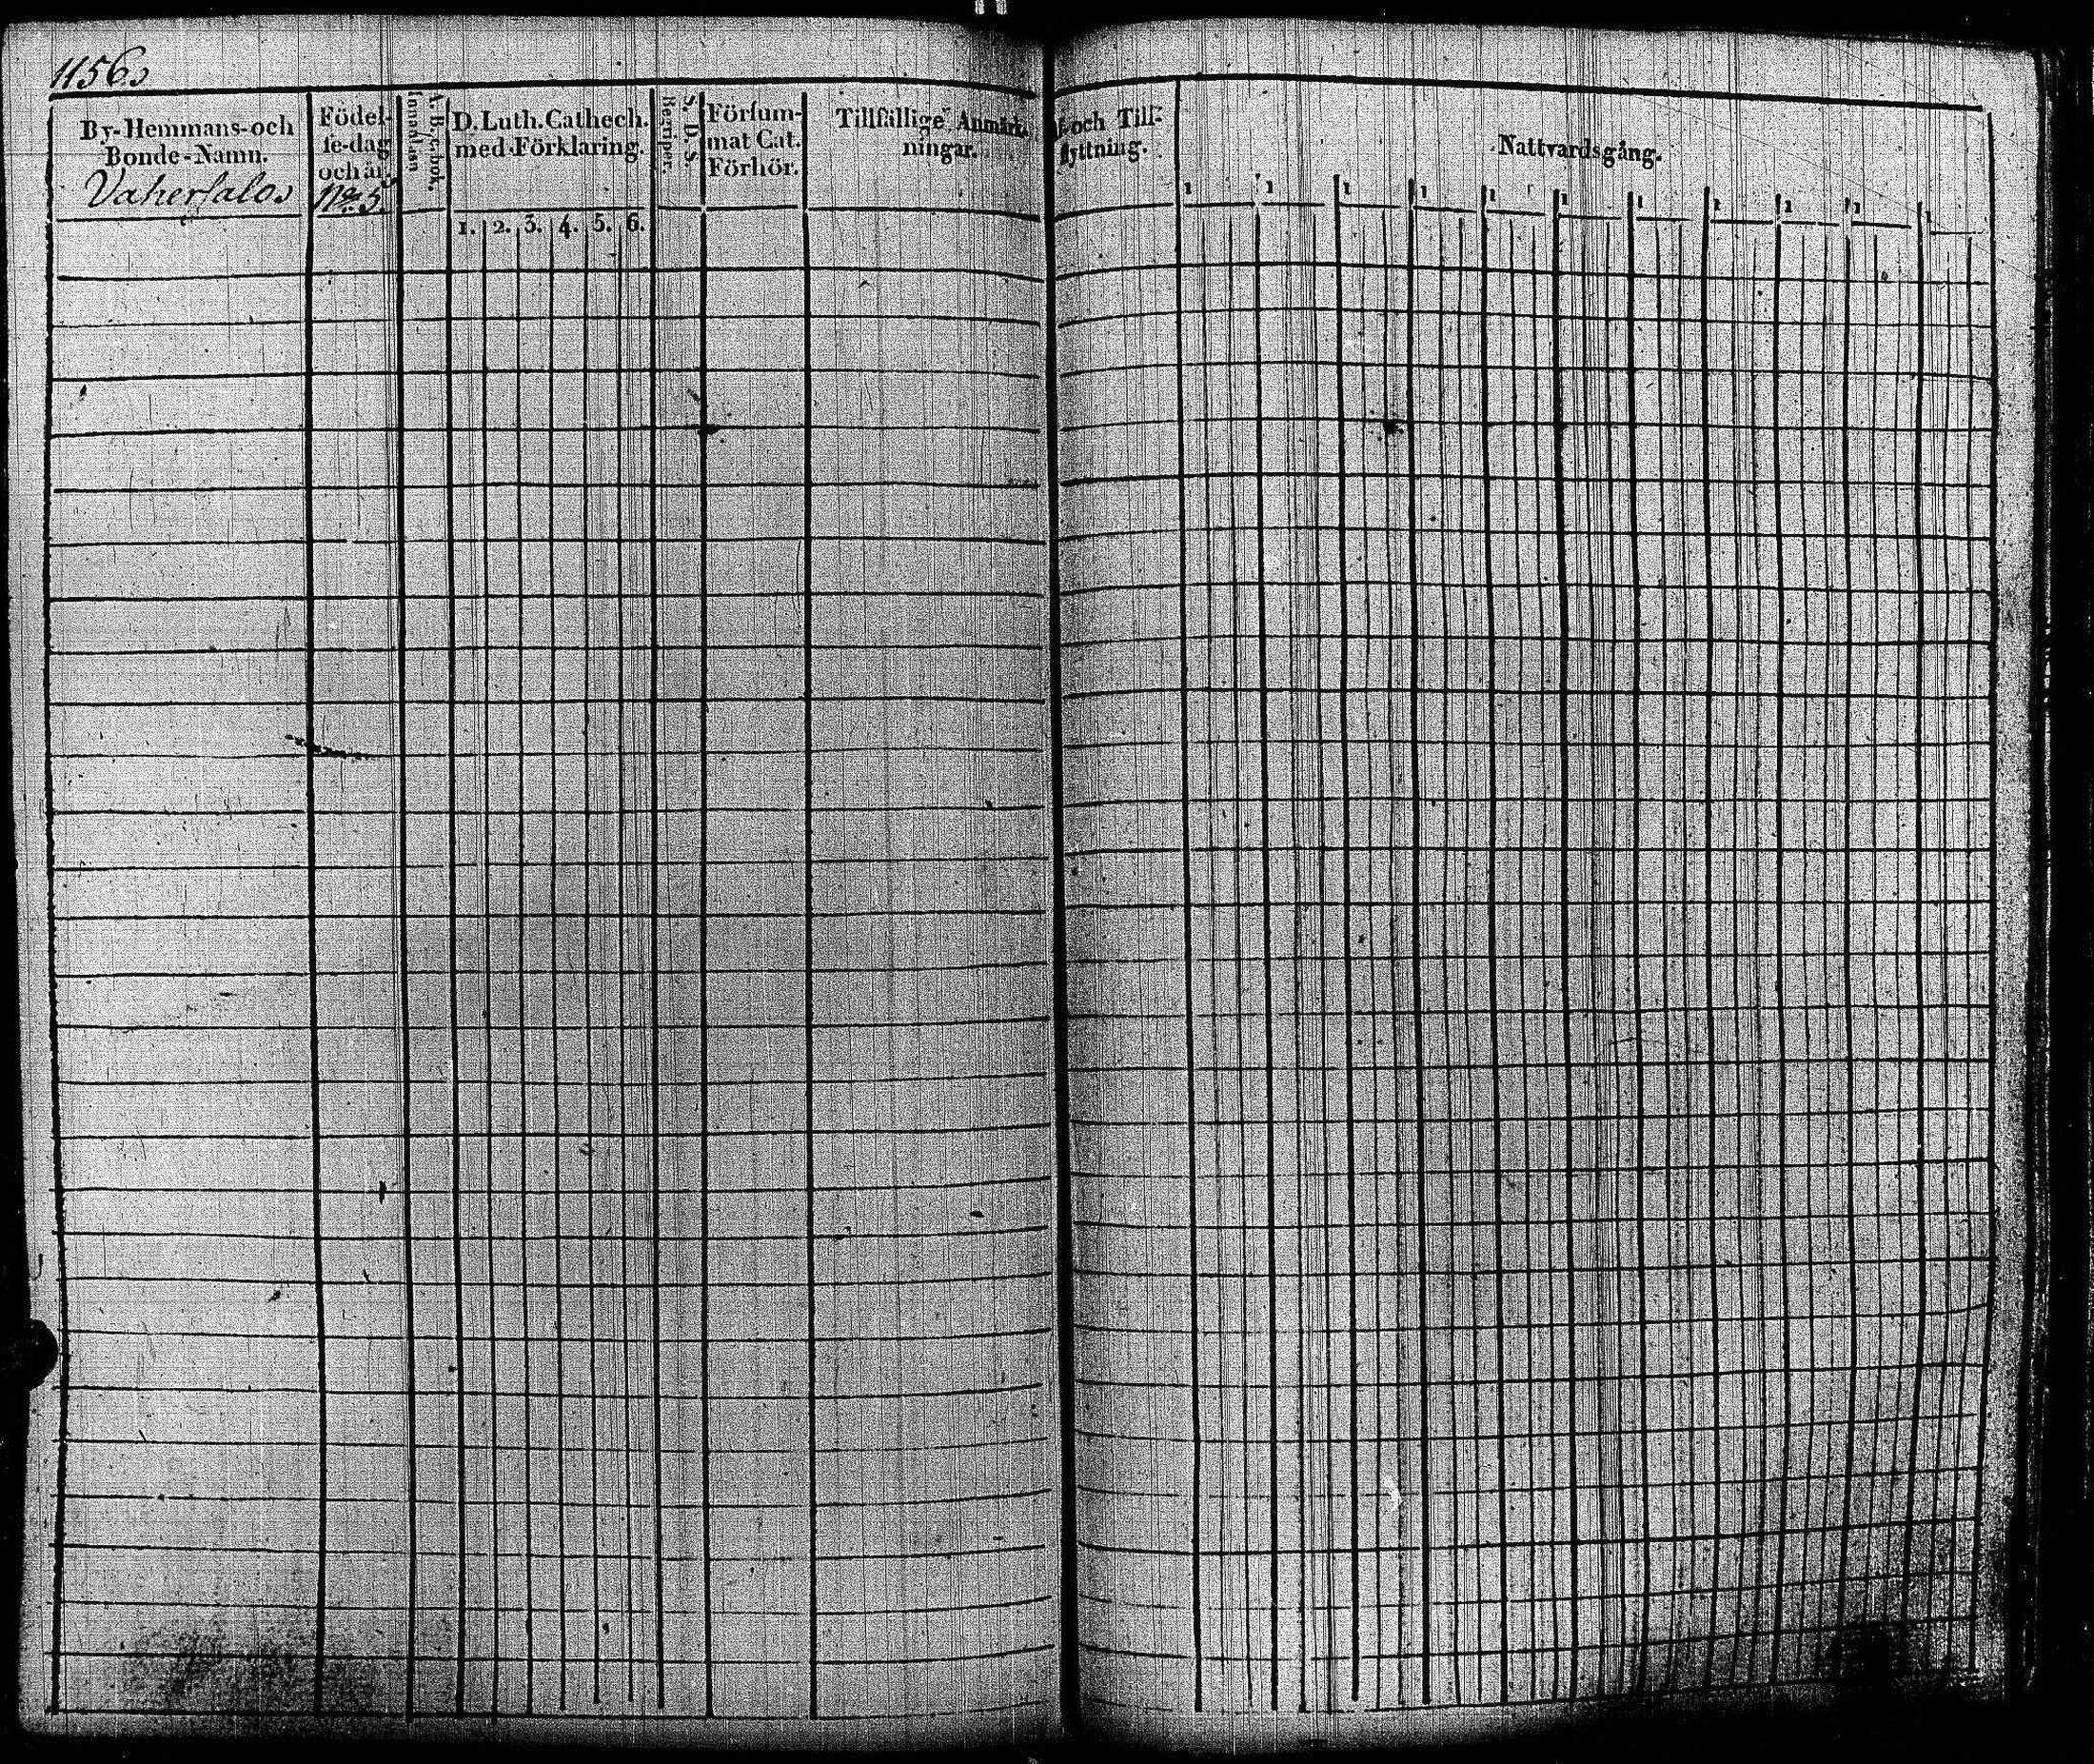 1156.
By-Hemmans-och
Bonde-Namn.
Vahersalo
Födel-
se-dag
och år.
No 5.
A.B.c.bok,
innanläsn
D. Luth. Cathech.
med Förklaring.
1. 2. 3. 4. 5. 6.
S. D. S.
Begriper.
Försum-
mat Cat.
Förhör.
Tillfällige Anmärk-
ningar.
och Till-
flyttning.
Nattvardsgång.
1 1 1 1 1 1 1 1 1 1 1